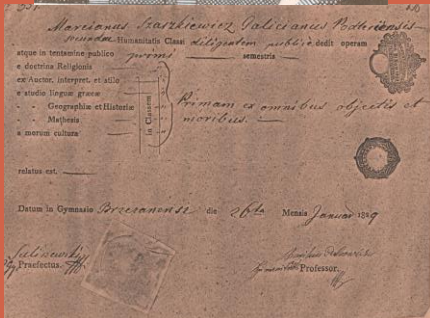 Marcianus Szaszkiewicz Galicianus Podhoriensis
secundae Humanitatis Classi diligentem publice dedit operam
atque in tentamine publico primi semestris
e doctrina Religionis
ex Auctor. interpret. et stilo
e studio linguæ græcæ
- - Geographiæ et Historiæ
- - Mathesis
a morum cultura
in Classem
Primam ex omnibus objectis et
moribus.
relatus est.
Datum in Gymnasio Brzezanensi die 26ta Mensis Januar 1829
Præfectus.
Professor.